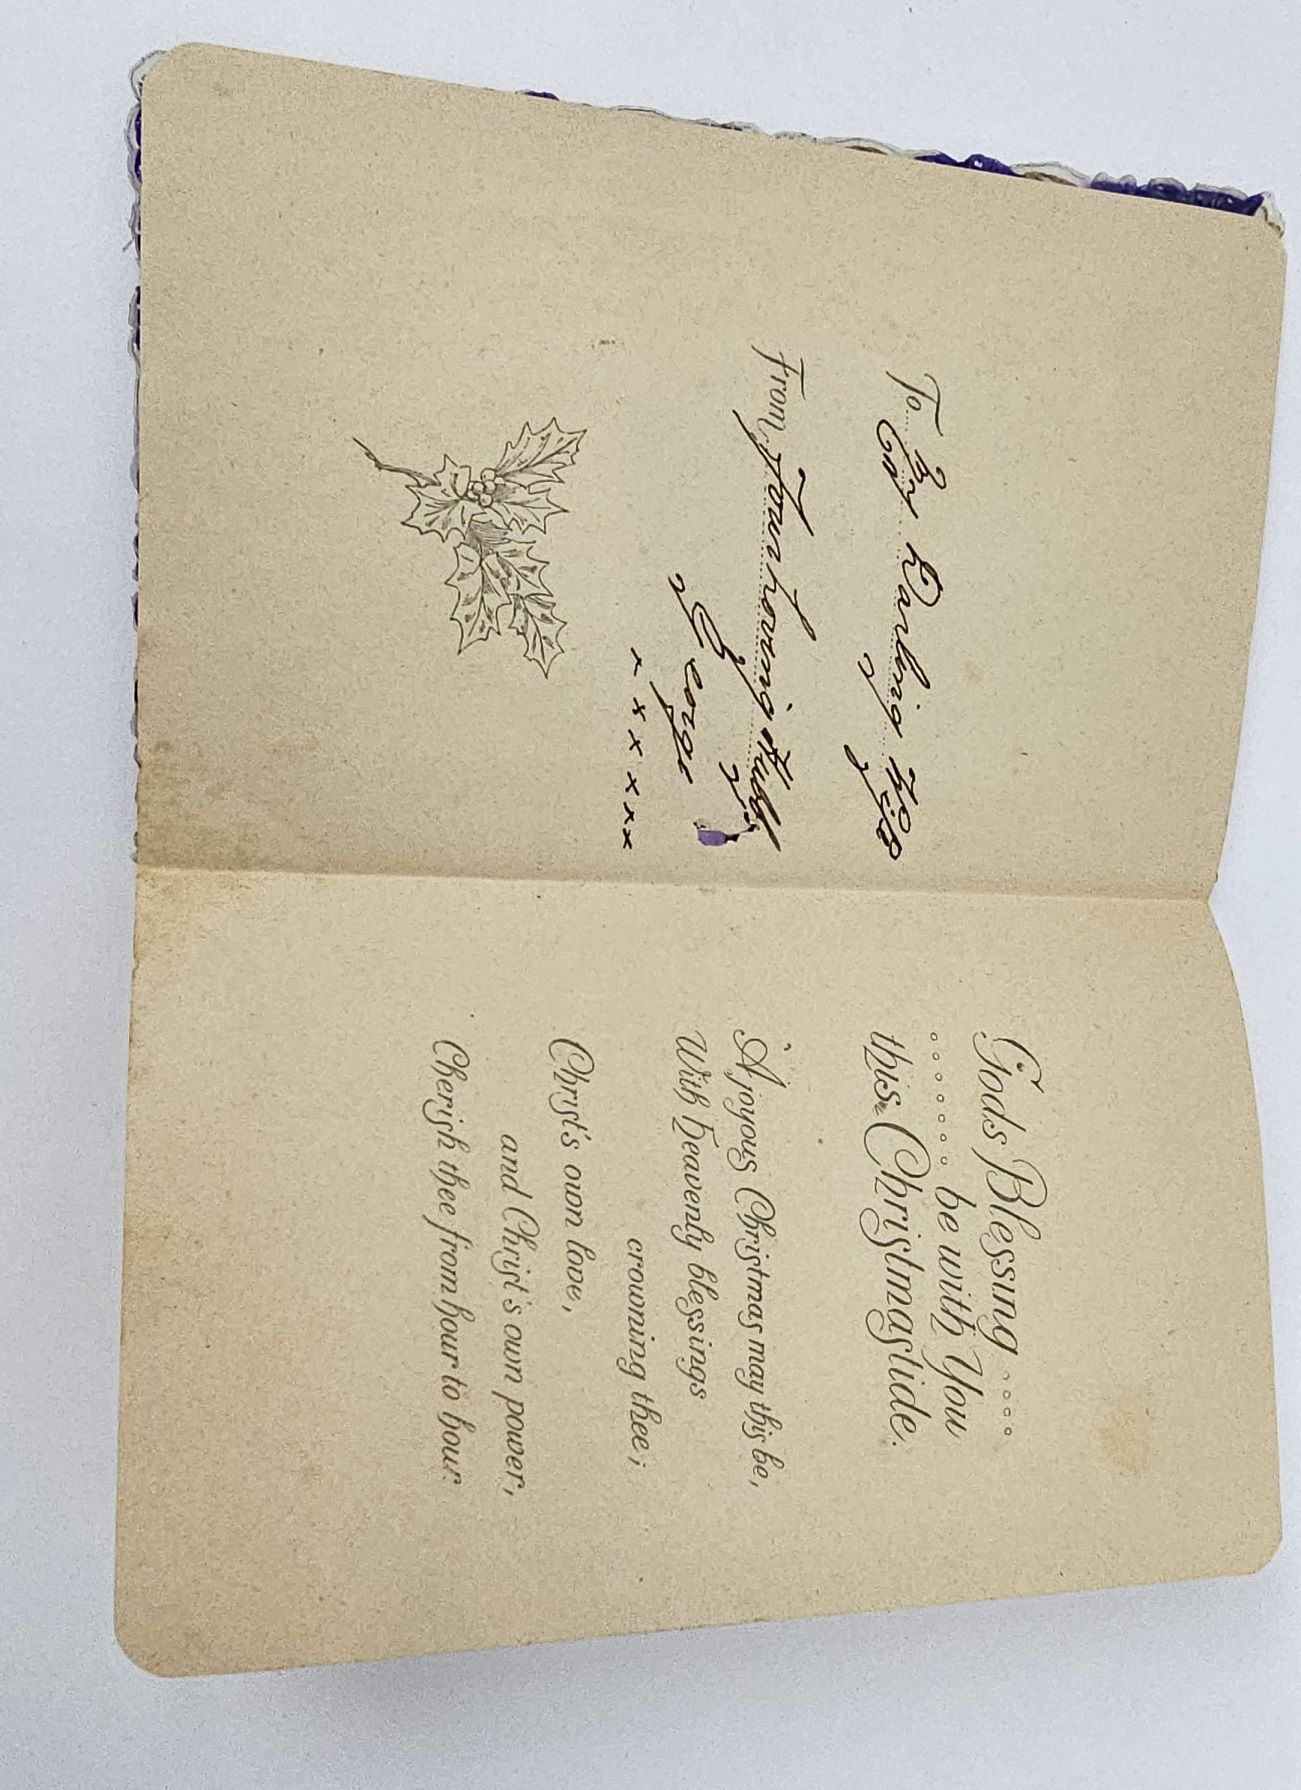 To My Darling Wife
From Your Loving Hubby
George
x x x x x x
Gods Blessing....
...... be with You
this Christmastide.
A joyous Christmas may this be,
With heavenly blessings
crowning thee;
Christ's own love,
and Christ's own power,
Cherish thee from hour to hour.